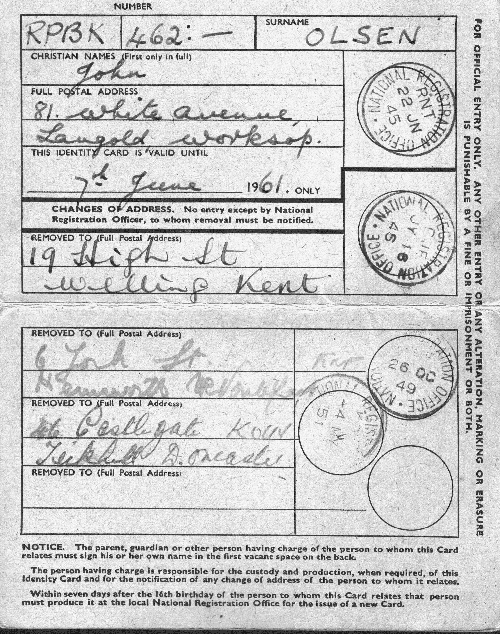 NUMBER
SURNAME
RPBK 462:— OLSEN
CHRISTIAN NAMES (First only in full)
John
FULL POSTAL ADDRESS
81. White avenue,
Langold worksop.
THIS IDENTITY CARD IS VALID UNTIL
7th June 1961. ONLY
CHANGES OF ADDRESS. No entry except by National
Registration Officer, to whom removal must be notified.
REMOVED TO (Full Postal Address)
19 High St
Welling Kent
NATIONAL REGISTRATION OFFICE
RNT
22 JN
45
NATIONAL REGISTRATION OFFICE
JY 16
45
REMOVED TO (Full Postal Address)
6 York St
REMOVED TO (Full Postal Address)
Castlegate
Tickhill Doncaster
REMOVED TO (Full Postal Address)
26 OC
49
51
FOR OFFICIAL ENTRY ONLY. ANY OTHER ENTRY OR ANY ALTERATION, MARKING OR ERASURE
IS PUNISHABLE BY A FINE OR IMPRISONMENT OR BOTH.
NOTICE. The parent, guardian or other person having charge of the person to whom this Card
relates must sign his or her own name in the first vacant space on the back.
The person having charge is responsible for the custody and production, when required, of this
Identity Card and for the notification of any change of address of the person to whom it relates.
Within seven days after the 16th birthday of the person to whom this Card relates that person
must produce it at the local National Registration Office for the issue of a new Card.